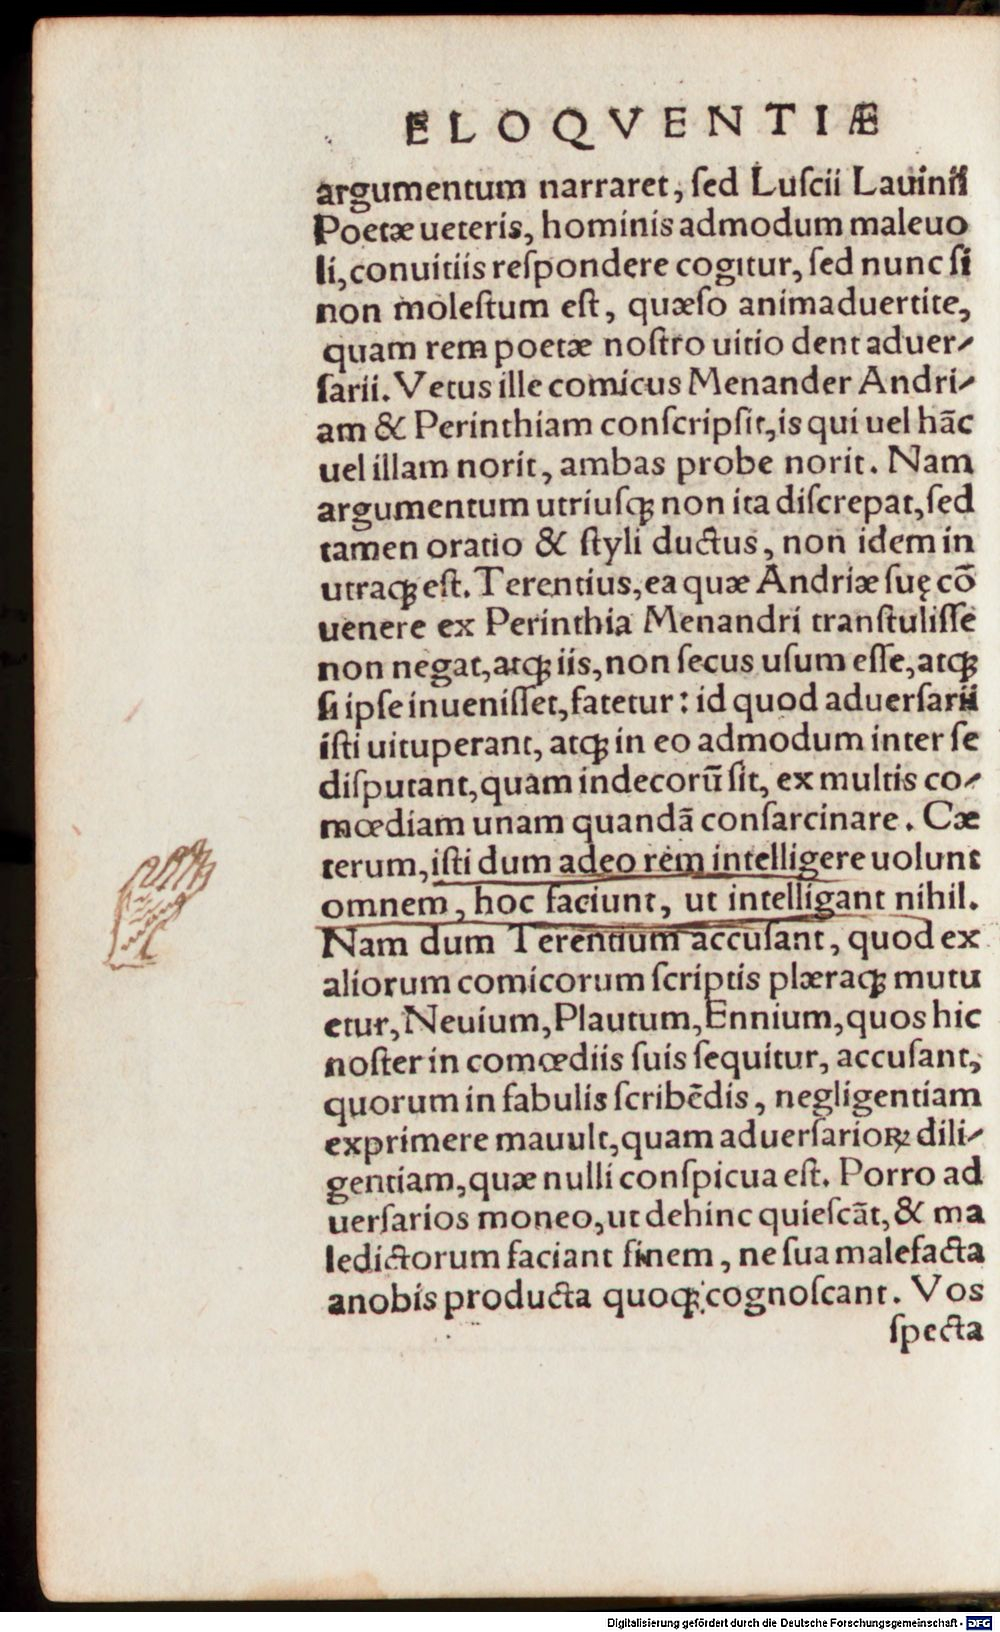 ELOQVENTIÆ
argumentum narraret, ſed Luſcii Lauinii
Poetæ ueteris, hominis admodum maleuo
li, conuitiis reſpondere cogitur, ſed nunc ſi
non moleſtum eſt, quæſo animaduertite,
quam rem poetæ noſtro uitio dent aduer⸗
ſarii. Vetus ille comicus Menander Andri⸗
am & Perinthiam conſcripſit, is qui uel hãc
uel illam norit, ambas probe norit. Nam
argumentum utriuſqꝫ non ita diſcrepat, ſed
tamen oratio & ſtyli ductus, non idem in
utraqꝫ eſt. Terentius, ea quæ Andriæ ſuę cõ
uenere ex Perinthia Menandri tranſtuliſſe
non negat, atqꝫ iis, non ſecus uſum eſſe, atqꝫ
ſi ipſe inueniſſet, fatetur: id quod aduerſarii
iſti uituperant, atqꝫ in eo admodum inter ſe
diſputant, quam indecorũ ſit, ex multis co⸗
mœdiam unam quandã conſarcinare. Cæ
terum, iſti dum adeo rem intelligere uolunt
omnem, hoc faciunt, ut intelligant nihil.
Nam dum Terentium accuſant, quod ex
aliorum comicorum ſcriptis plæraqꝫ mutu
etur, Neuium, Plautum, Ennium, quos hic
noſter in comœdiis ſuis ſequitur, accuſant,
quorum in fabulis ſcribẽdis, negligentiam
exprimere mauult, quam aduerſarioꝝ dili⸗
gentiam, quæ nulli conſpicua eſt. Porro ad
uerſarios moneo, ut dehinc quieſcãt, & ma
ledictorum faciant finem, ne ſua malefacta
anobis producta quoqꝫ cognoſcant. Vos
ſpecta
Digitalisierung gefördert durch die Deutsche Forschungsgemeinschaft - DFG